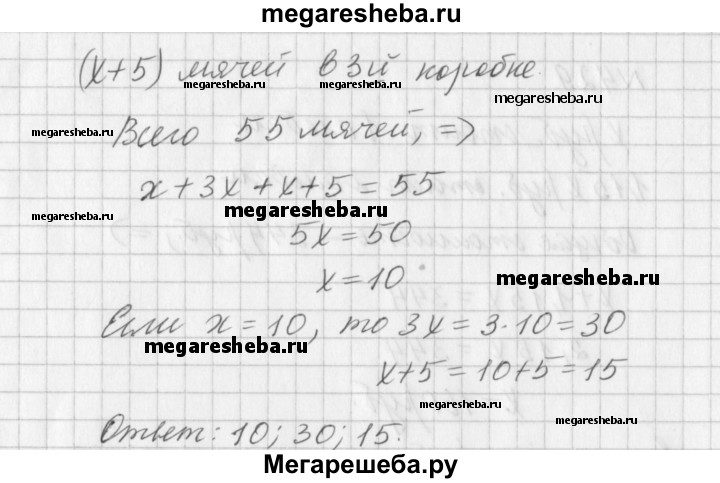 megaresheba.ru
(x+5) мячей в 3й коробке.
megaresheba.ru megaresheba.ru megaresheba.ru
megaresheba.ru
Всего 55 мячей, =>
megaresheba.ru
x+3x+x+5=55
megaresheba.ru
megaresheba.ru
5x=50
x=10
megaresheba.ru
Если x=10, то 3x=3·10=30
megaresheba.ru
x+5=10+5=15
megaresheba.ru
megaresheba.ru megaresheba.ru
Ответ: 10; 30; 15.
Мегарешеба.ру